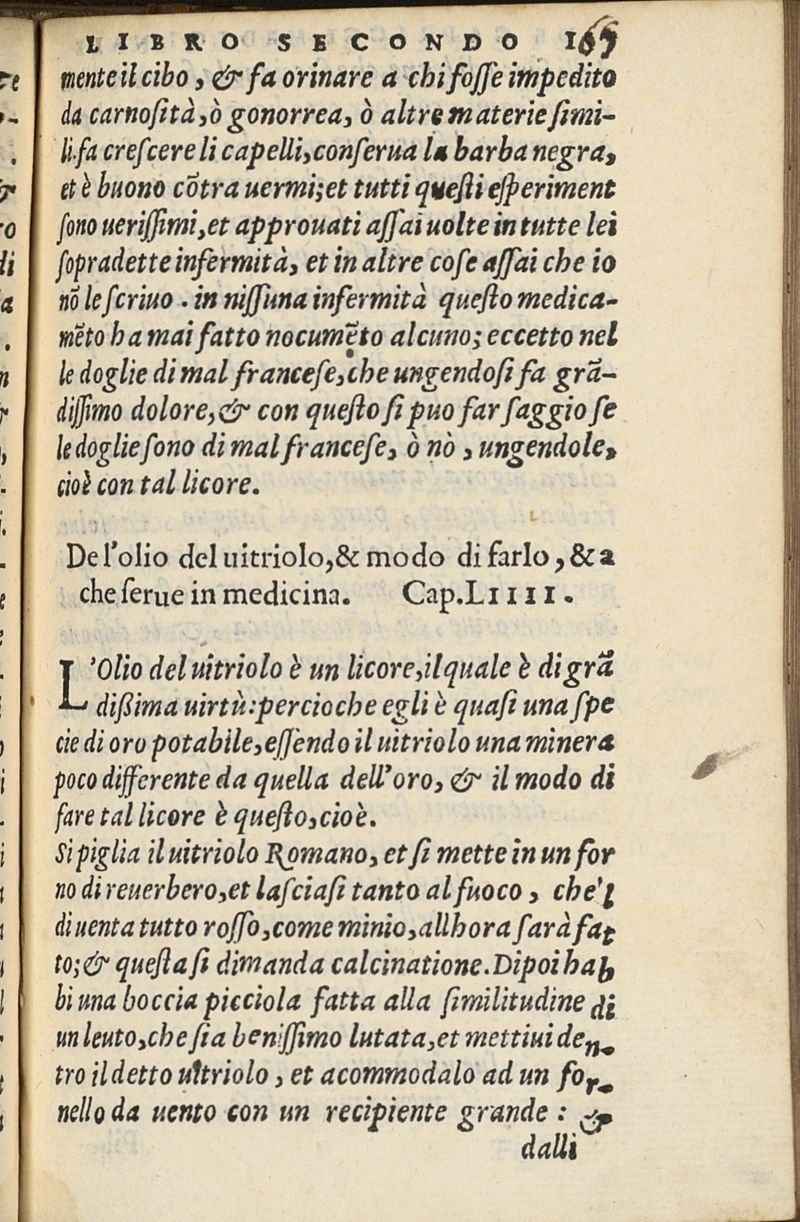 LIBRO SECONDO 165
mente il cibo, & fa orinare a chi fosse impedito
da carnosità, ò gonorrea, ò altre materie simi-
li. fa crescere li capelli, conserua la barba negra,
et è buono cõtra uermi; et tutti questi esperiment
sono uerissimi, et approuati assai uolte in tutte lei
sopradette infermità, et in altre cose assai che io
nõ le scriuo. in nissuna infermità questo medica-
mẽto ha mai fatto nocumẽto alcuno; eccetto nel
le doglie di mal francese, che ungendosi fa grã-
dissimo dolore, & con questo si puo far saggio se
le doglie sono di mal francese, ò nò, ungendole,
cioè con tal licore.
De l'olio del uitriolo, & modo di farlo, & a
che serue in medicina. Cap. LIIII.
L'Olio del uitriolo è un licore, il quale è di grã
dißima uirtù: percioche egli è quasi una spe
cie di oro potabile, essendo il uitriolo una minera
poco differente da quella dell'oro, & il modo di
fare tal licore è questo, cioè.
Si piglia il uitriolo Romano, et si mette in un for
no di reuerbero, et lasciasi tanto al fuoco, che'l
diuenta tutto rosso, come minio, allhora sarà fat
to; & questa si dimanda calcinatione. Dipoi hab
bi una boccia picciola fatta alla similitudine di
un leuto, che sia benissimo lutata, et mettiui den-
tro il detto uitriolo, et acommodalo ad un for-
nello da uento con un recipiente grande: &
dalli